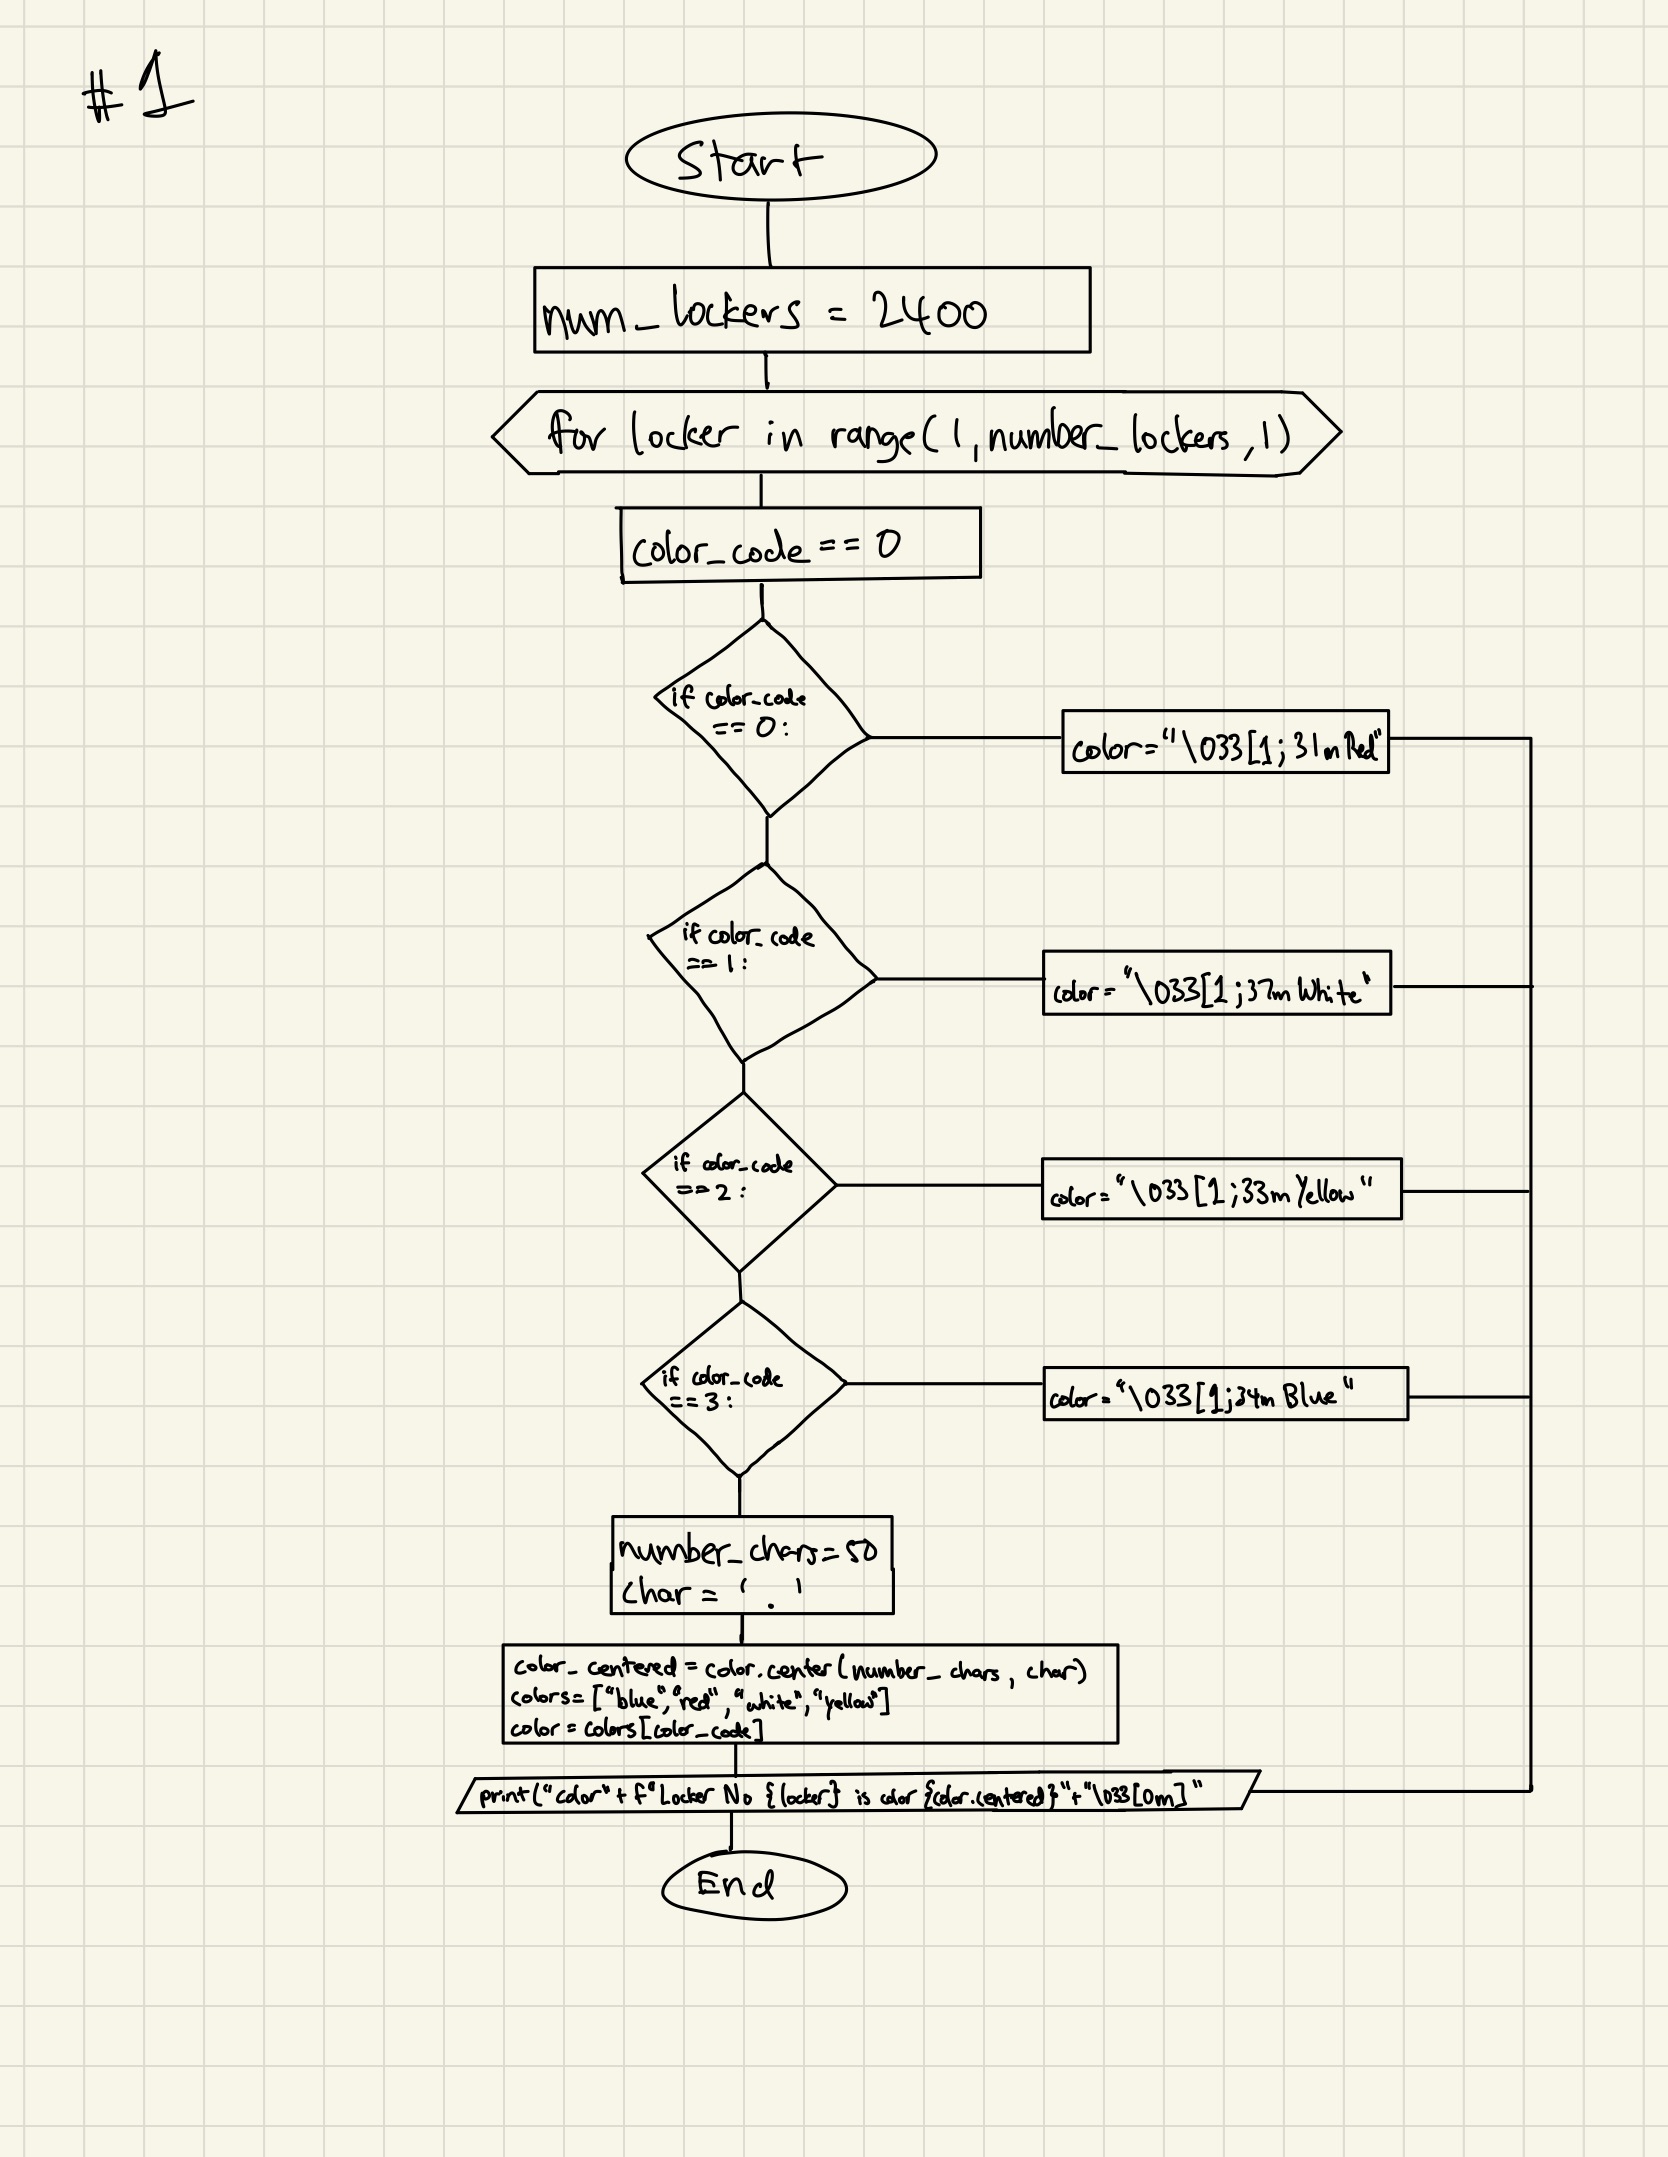 #1
Start
num_lockers = 2400
for locker in range(1,number_lockers,1)
color_code == 0
if color_code
== 0:
color="\033[1;31mRed"
if color_code
== 1:
color="\033[1;37mWhite"
if color_code
==2:
color="\033[1;33mYellow"
if color_code
==3:
color="\033[1;34m Blue"
number_chars=50
char = '.'
color_centered = color.center(number_chars, char)
colors=["blue","red","white","yellow"]
color = colors[color_code]
print("color"+ f"Locker No {locker} is color {color.centered}"+"\033[0m]"
End